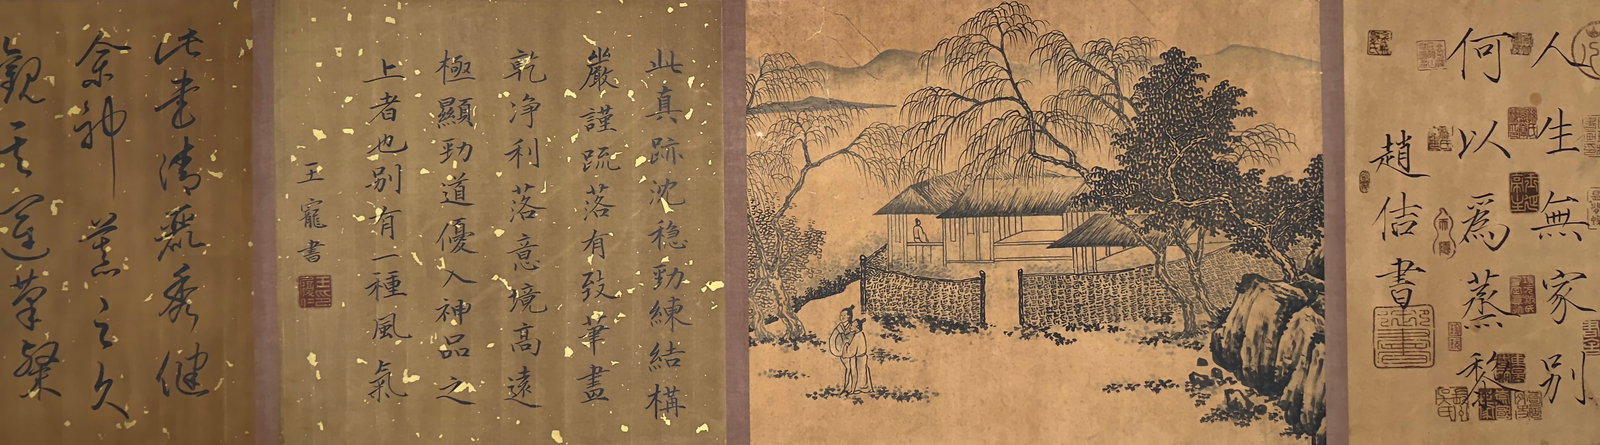 人生無家别
何以為蒸黎
趙佶書
此真跡沈穩勁練結構
嚴謹疏落有致筆畫
乾净利落意境高遠
極顯勁道優入神品之
上者也别有一種風氣
王寵書
此書清麗秀健
余神慕之久
觀其運筆